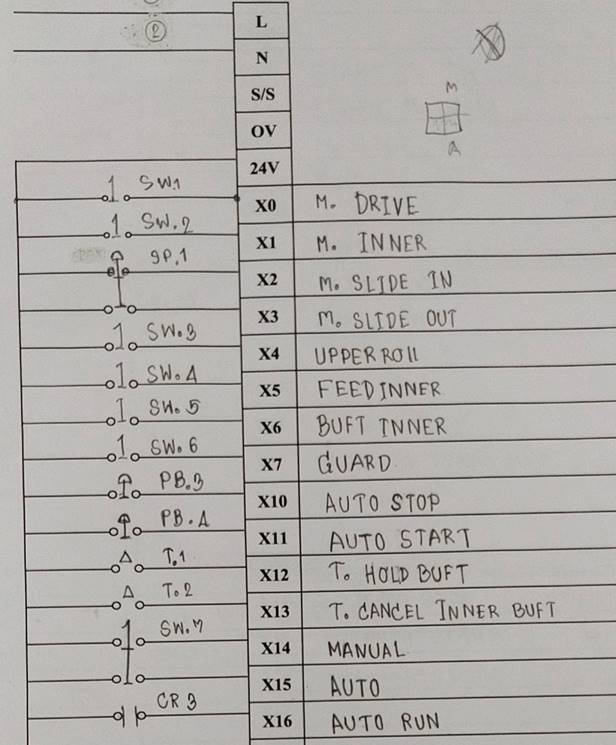 2
L
N
S/S
OV
M
24V
A
SW.1 X0 M. DRIVE
SW.2 X1 M. INNER
X2 M. SLIDE IN
X3 M. SLIDE OUT
SW.3 X4 UPPER ROLL
SW.4 X5 FEED INNER
SW.5 X6 BUFT INNER
SW.6 X7 GUARD
PB.3 X10 AUTO STOP
PB.4 X11 AUTO START
T.1 X12 T. HOLD BUFT
T.2 X13 T. CANCEL INNER BUFT
SW.7 X14 MANUAL
X15 AUTO
CR 3 X16 AUTO RUN